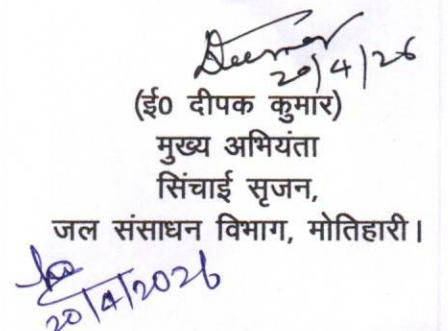 20/4/26
(ई0 दीपक कुमार)
मुख्य अभियंता
सिंचाई सृजन,
जल संसाधन विभाग, मोतिहारी।
20/4/2026